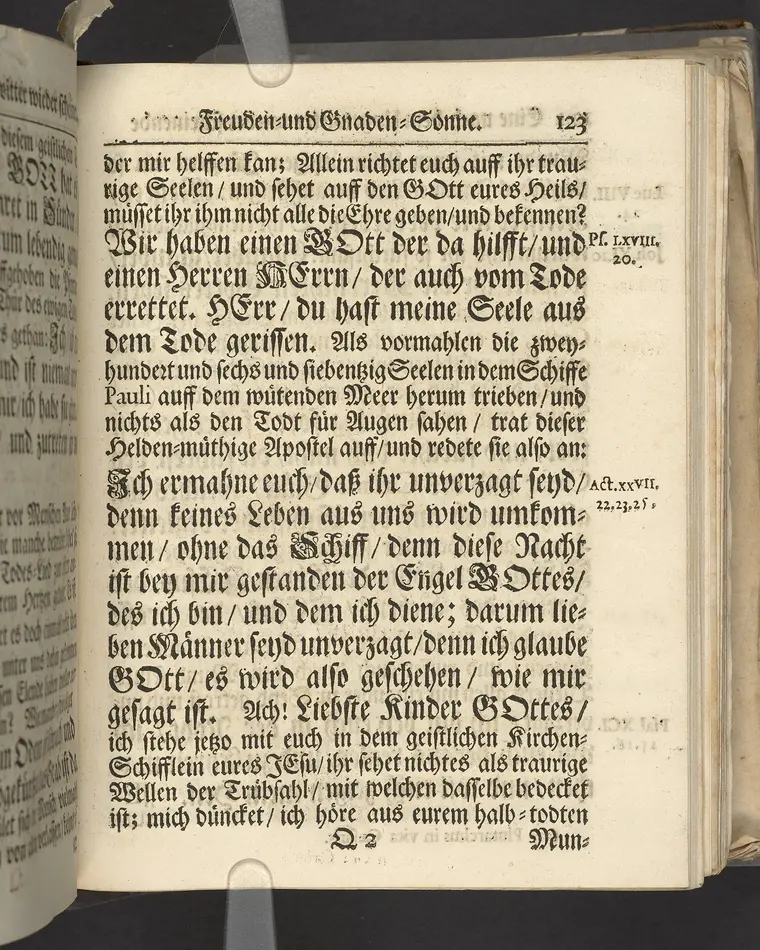 Freuden-und Gnaden-Sonne. 123
der mir helffen kan; Allein richtet euch auff ihr trau-
rige Seelen / und sehet auff den GOtt eures Heils/
müsset ihr ihm nicht alle die Ehre geben/und bekennen?
Wir haben einen GOtt der da hilfft/und
Ps. LXVIII.
20.
einen Herren HErrn/ der auch vom Tode
errettet. HErr/ du hast meine Seele aus
dem Tode gerissen. Als vormahlen die zwey-
hundert und sechs und siebentzig Seelen in dem Schiffe
Pauli auff dem wütenden Meer herum trieben/und
nichts als den Todt für Augen sahen / trat dieser
Helden-müthige Apostel auff/und redete sie also an:
Ich ermahne euch/daß ihr unverzagt seyd/
Act. XXVII.
22.23.25.
denn keines Leben aus uns wird umkom-
men/ ohne das Schiff/denn diese Nacht
ist bey mir gestanden der Engel GOttes/
des ich bin/ und dem ich diene; darum lie-
ben Männer seyd unverzagt/denn ich glaube
GOtt/ es wird also geschehen/ wie mir
gesagt ist. Ach! Liebste Kinder GOttes/
ich stehe jetzo mit euch in dem geistlichen Kirchen-
Schifflein eures JEsu/ihr sehet nichtes als traurige
Wellen der Trübsahl/ mit welchen dasselbe bedecket
ist; mich düncket/ ich höre aus eurem halb-todten
Q 2 Mun-